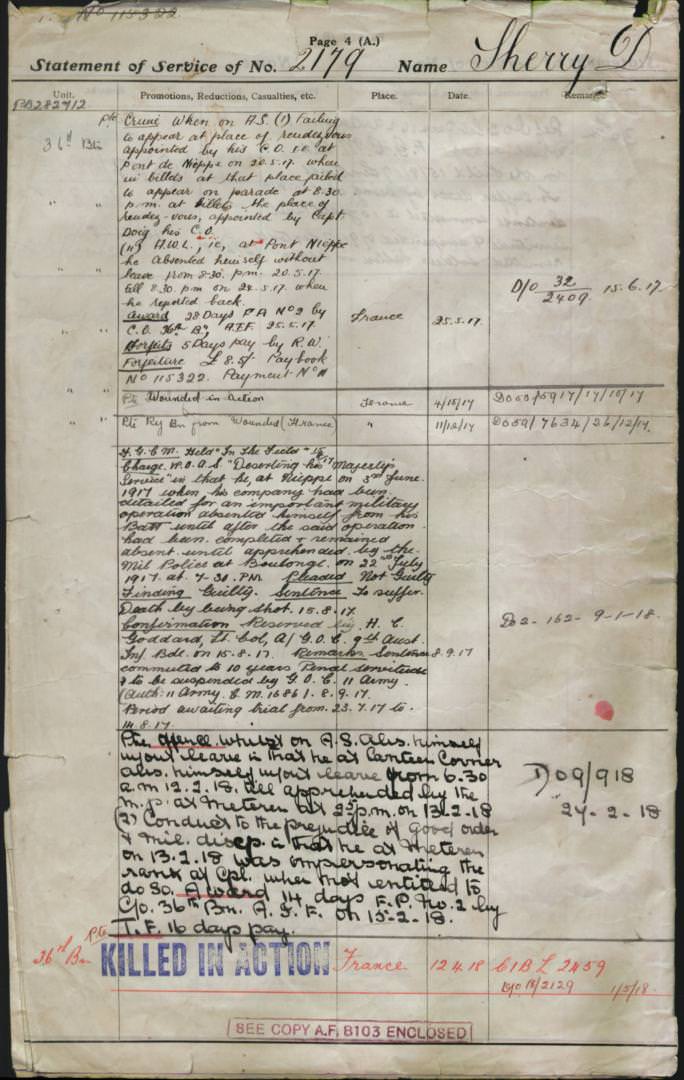 1. No 115322
Page 4 (A.)
Statement of Service of No. 2179 Name Sherry D
Unit. Promotions, Reductions, Casualties, etc. Place. Date. Remarks
PB282712
36th Bn
Pte Crime When on A.S. (1) failing
to appear at place of rendezvous
appointed by his C.O. i.e. at
Pont de Nieppe on 20.5.17. when
in billets at that place failed
to appear on parade at 8.30.
p.m. at billets the place of
rendez-vous, appointed by Capt
Doig his C.O.
(11) A.W.L., ie, at Pont Nieppe
he absented himself without
leave from 8-30. p.m. 20.5.17.
till 8.30. pm on 24.5.17. when
he reported back.
Award 28 Days F.P. No 2 by
C.O. 36th Bn, A.I.F. 25.5.17.
Forfeits 5 Days pay by R.W.
Forfeiture £8.5/- Paybook
No 115322. Payment No 11
France 25.5.17. D/O 32/2409 15.6.17
" " Pte Wounded in Action France 4/10/17 DO50/5917/17/10/17
" " Pte Rej Bn from Wounded (France) " 11/12/17 DO59/7634/26/12/17.
F.G.C.M. Held "In The Field"
Charge. W.O.A.S "Deserting his Majesty's
Service" in that he, at Nieppe on 3rd June.
1917 when his company had been
detailed for an important military
operation absented himself from his
Batt until after the said operation
had been completed & remained
absent until apprehended by the
Mil Police at Boulonge. on 22nd July
1917. at 7-30. P.M. Pleaded Not Guilty
Finding Guilty. Sentence To suffer
Death by being shot. 15.8.17.
Confirmation Reserved by. H. C.
Goddard, Lt. Col, A/G.O.C. 9th Aust.
Inf Bde. on 15.8.17. Remarks Sentence 8.9.17
commuted to 10 years Penal servitude
& to be suspended by G.O.C. 11 Army.
(Auth: 11 Army. C.M. 1686/. 8.9.17.
Period awaiting trial from. 23.7.17 to.
14.8.17.
Do2-162-9-1-18.
Pte Offence. whilst on A.S. Abs. himself
w/out leave in that he at Canteen Corner
abs. himself w/out leave from 6.30
a.m 12.2.18. till apprehended by the
M.P. at Meteren at p.m. on 13-2-18
(2) Conduct to the prejudice of Good order
& Mil. discp. in that he at Meteren
on 13.2.18 was impersonating the
rank of Cpl. when not entitled to
do so. Award 14 days F.P. No.2 by
C/o. 36th Bn. A.I.F. on 15-2-18.
T.F. 16 days pay.
DO9/918
24-2-18
36th Bn Pte KILLED IN ACTION France 12.4.18 C1B L 2459
DO 18/2129 1/5/18.
SEE COPY A.F. B103 ENCLOSED